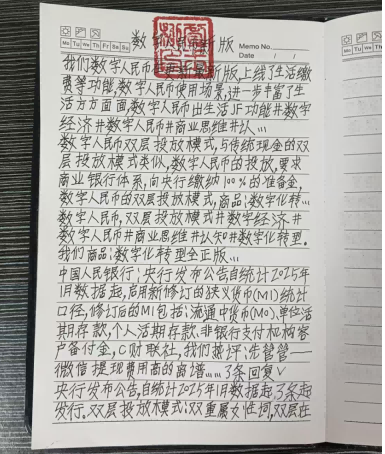 Mo Tu We Th Fr Sa Su
Memo No.
Date / /
数字人民币新版
我们数字人民币 最新版,上线了生活缴
费等功能,数字人民币使用场景,进一步丰富了生
活方方面面数字人民币出生活圷功能#数字
经济#数字人民币#商业思维#认...
数字人民币双层投放模式,与传统现金的双
层投放模式类似,数字人民币的投放,要求
商业银行体系,向央行缴纳100%的准备金,
数字人民币的双层投放模式,商品;数字化转...
数字人民币,双层投放模式#数字经济#
数字人民币#商业思维#认知#数字化转型.
我们商品;数字化转型全正版...
中国人民银行:央行发布公告自统计2025年
1月数据起,启用新修订的狭义货币(M1)统计
口径,修订后的M1包括:流通中货币(M0)、单位活
期存款,个人活期存款、非银行支付机构客
户备付金,C财联社,我们 先管管一
微信提现费用高的离谱……3条回复∨
央行发布公告,自统计2025年1月数据起3条起
发行。双层投放模式:双重属性词,双层在